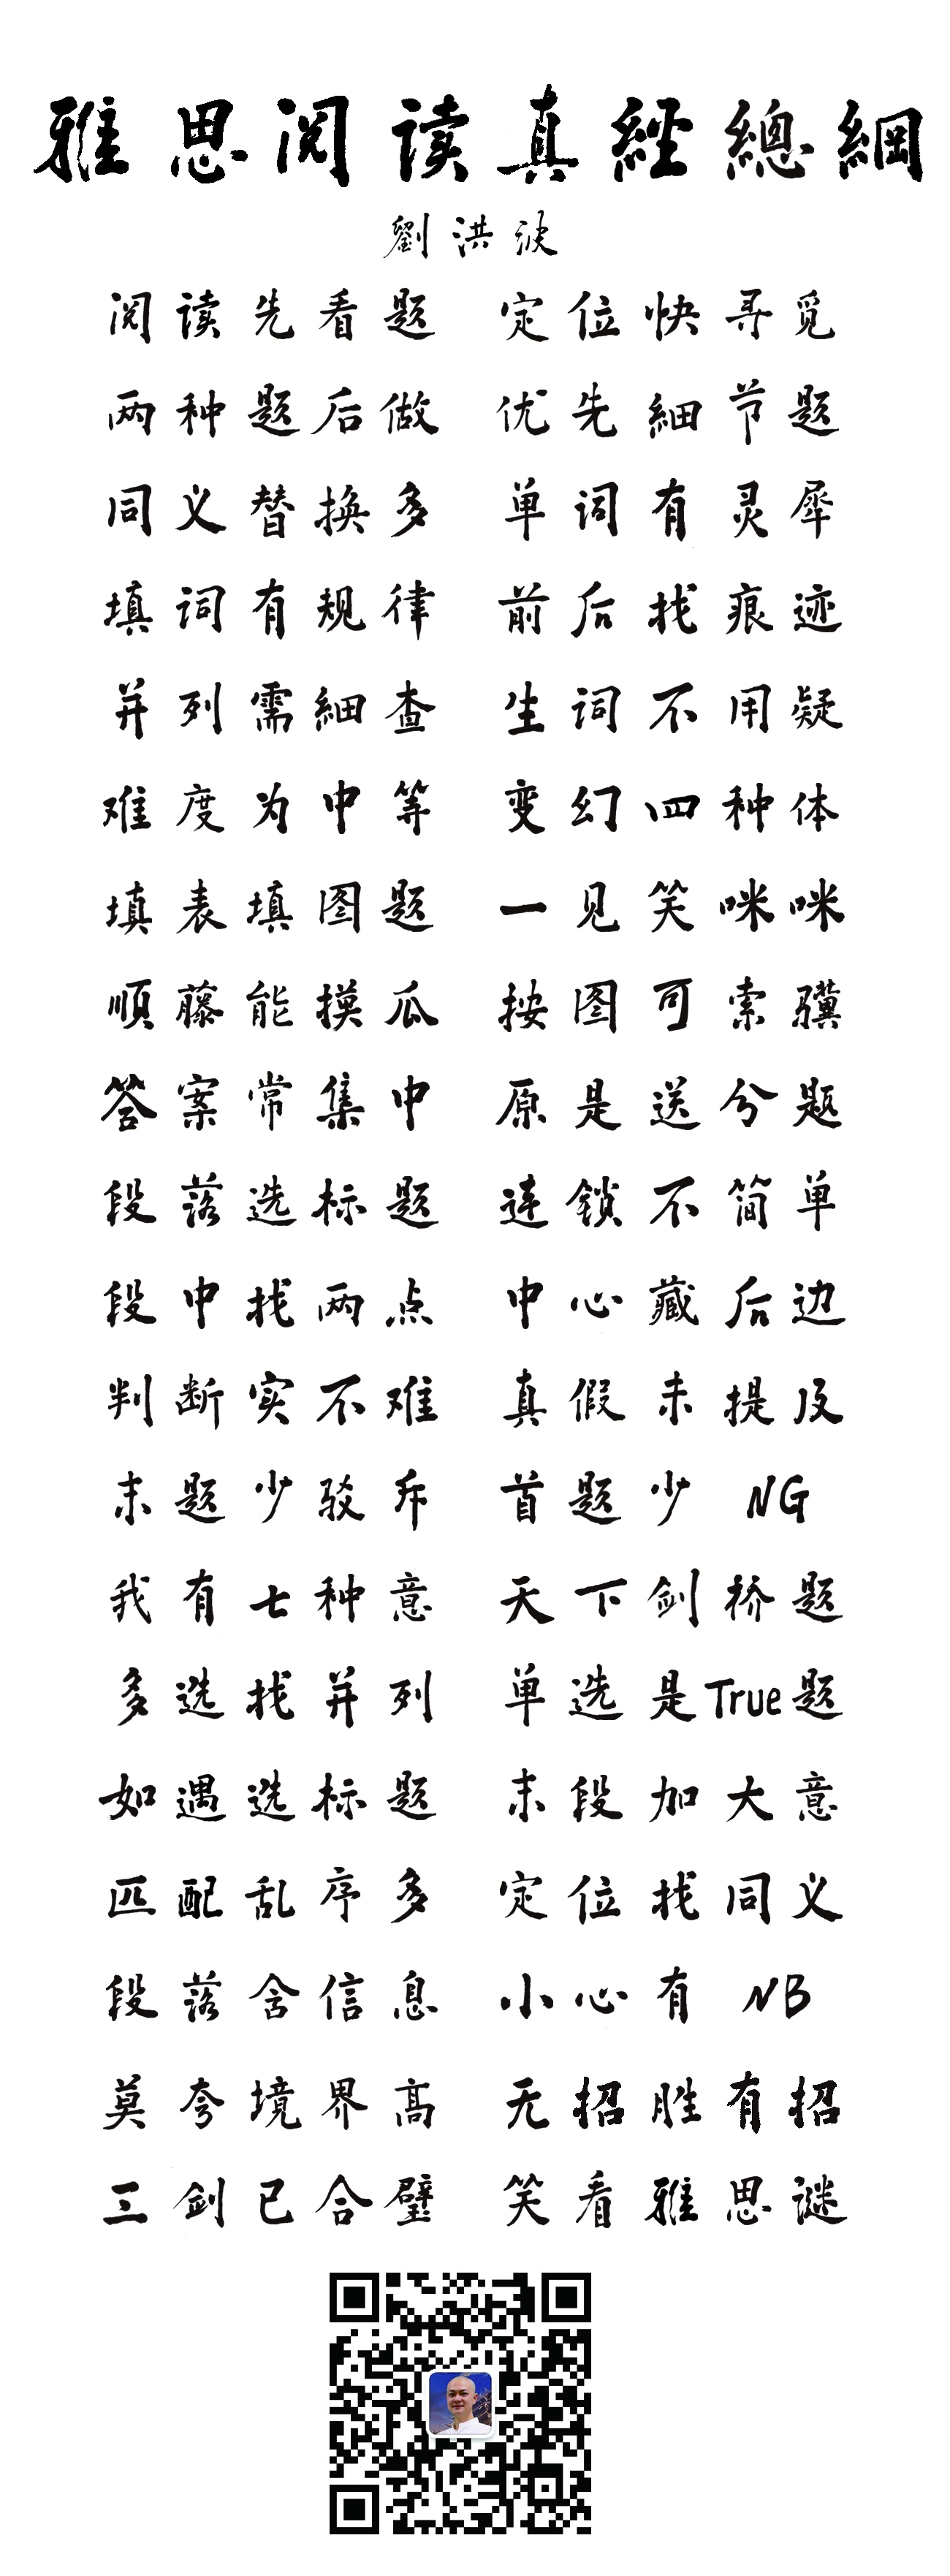 雅思阅读真經總綱
劉洪波
阅读先看题 定位快寻觅
两种题后做 优先細节题
同义替换多 单词有灵犀
填词有规律 前后找痕迹
并列需細查 生词不用疑
难度为中等 变幻四种体
填表填图题 一见笑咪咪
順藤能摸瓜 按图可索骥
答案常集中 原是送分题
段落选标题 连锁不简单
段中找两点 中心藏后边
判断实不难 真假未提及
末题少驳斥 首题少 NG
我有七种意 天下剑桥题
多选找并列 单选是True题
如遇选标题 末段加大意
匹配乱序多 定位找同义
段落含信息 小心有 NB
莫夸境界高 无招胜有招
三剑已合璧 笑看雅思谜